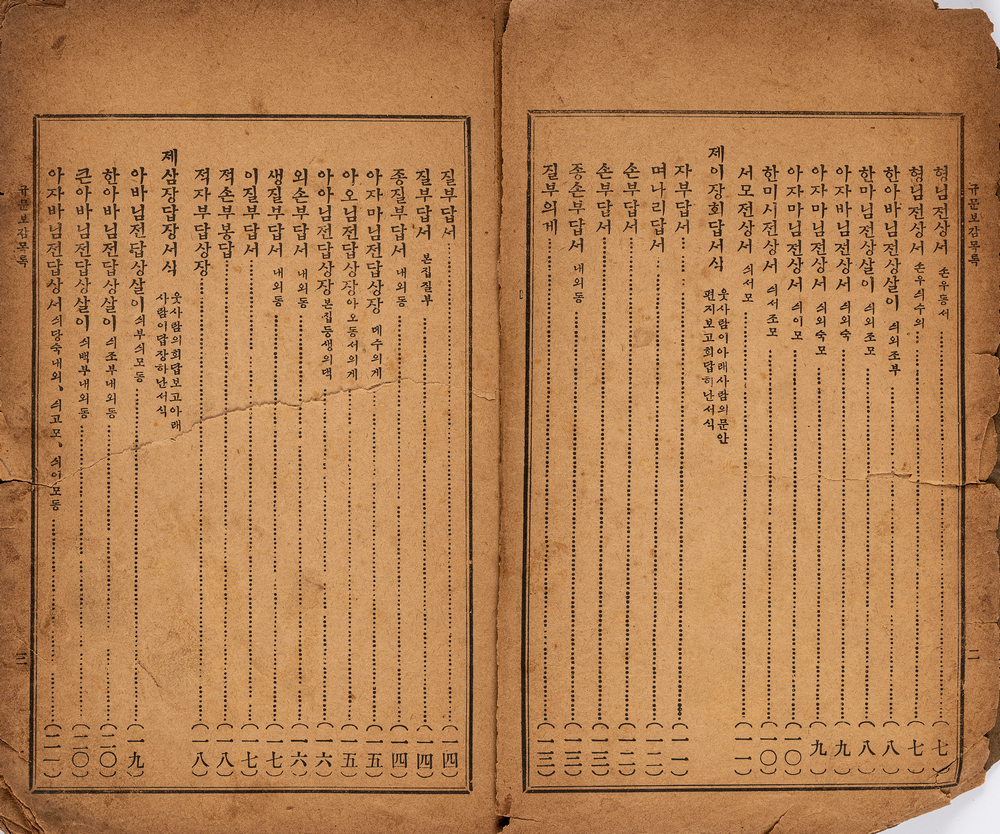 규문보감목록
二
형님전상서 손우동서 (七)
형님전상서 손우싀수의 (七)
한아바님전상살이 싀외조부 (八)
한마님전상살이 싀외조모 (八)
아자바님전상서 싀외숙 (九)
아자마님전상서 싀외숙모 (九)
아자마님전상서 싀이모 (一〇)
한미시전상서 싀서조모 (一〇)
서모전상서 싀서모 (一一)
제이장회답서식 웃사람이아래사람의문안
편지보고회답히난서식
자부답서 (一一)
며나리답서 (一二)
손부답서 (一二)
손부답서 (一三)
종손부답서 내외동 (一三)
질부의게 (一三)
질부답서 (一四)
질부답서 본집질부 (一四)
종질부답서 내외동 (一四)
아자마님전답상장 메수의게 (一五)
아오님전답상장 아오동서의게 (一五)
아아님전답상장 본집등생의댁 (一六)
외손부답서 내외동 (一六)
생질부답서 내외동 (一七)
이질부답서 (一七)
적손부봉답 (一八)
적자부답상장 (一八)
제삼장답장서식 웃사람의회답보고아래
사람이답장하난서식
아바님전답상살이 싀부싀모동 (一九)
한아바님전답상살이 싀조부내외동 (二〇)
큰아바님전답상살이 싀백부내외동 (二〇)
아자바님전답상서 싀당숙내외、싀고모、싀이모동 (二一)
규문보감목록
三